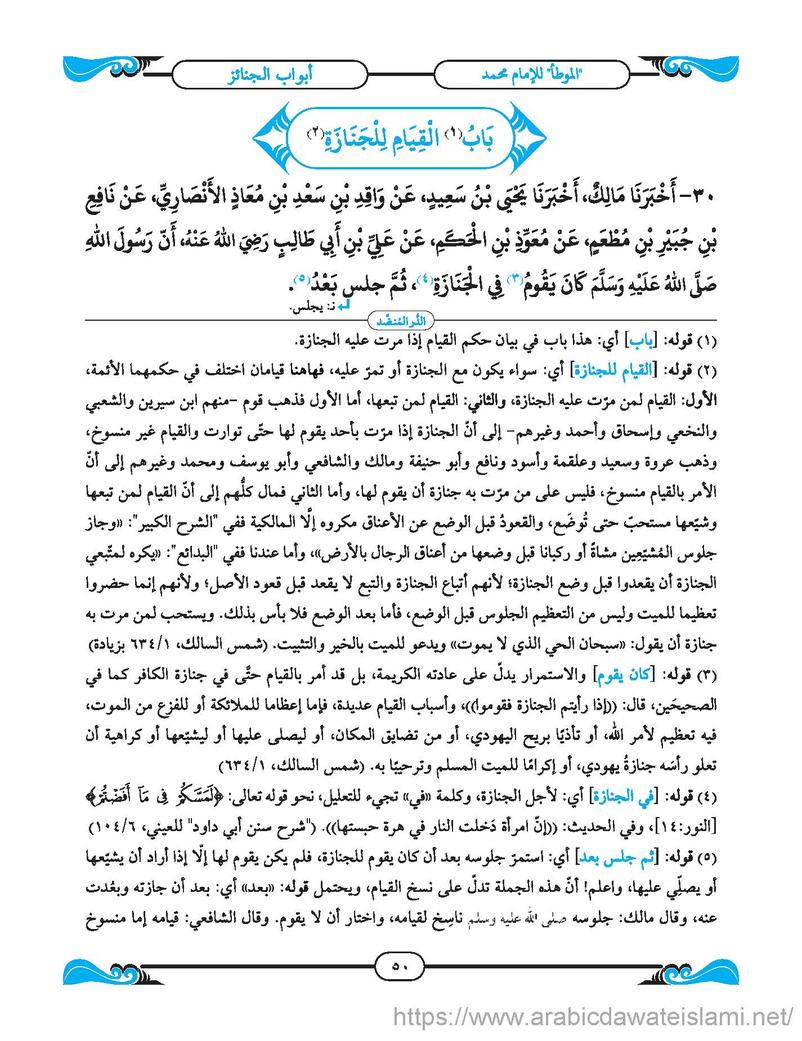 "الموطأ" للإمام محمد
أبواب الجنائز
بَابُ(١) الْقِيَامِ لِلْجَنَازَةِ(٢)
٣٠- أَخْبَرَنَا مَالِكٌ، أَخْبَرَنَا يَحْيَى بْنُ سَعِيدٍ، عَنْ وَاقِدِ بْنِ سَعْدِ بْنِ مُعَاذٍ الأَنْصَارِيِّ، عَنْ نَافِعِ
بْنِ جُبَيْرِ بْنِ مُطْعَمٍ، عَنْ مُعَوِّذِ بْنِ الْحَكَمِ، عَنْ عَلِيِّ بْنِ أَبِي طَالِبٍ رَضِيَ اللهُ عَنْهُ، أَنّ رَسُولَ اللهِ
صَلَّى اللهُ عَلَيْهِ وَسَلَّمَ كَانَ يَقُومُ(٣) فِي الْجَنَازَةِ(٤)، ثُمَّ جلس بَعْدُ(٥).
نـ: يجلس.
الدُّر المُنضَّد
(١) قوله: [باب] أي: هذا باب في بيان حكم القيام إذا مرت عليه الجنازة.
(٢) قوله: [القيام للجنازة] أي: سواء يكون مع الجنازة أو تمرّ عليه، فهاهنا قيامان اختلف في حكمهما الأئمة،
الأول: القيام لمن مرّت عليه الجنازة، والثاني: القيام لمن تبعها، أما الأول فذهب قوم -منهم ابن سيرين والشعبي
والنخعي وإسحاق وأحمد وغيرهم- إلى أنّ الجنازة إذا مرّت بأحد يقوم لها حتّى توارت والقيام غير منسوخ،
وذهب عروة وسعيد وعلقمة وأسود ونافع وأبو حنيفة ومالك والشافعي وأبو يوسف ومحمد وغيرهم إلى أنّ
الأمر بالقيام منسوخ، فليس على من مرّت به جنازة أن يقوم لها، وأما الثاني فمال كلُّهم إلى أنّ القيام لمن تبعها
وشيّعها مستحبّ حتى تُوضَع، والقعودُ قبل الوضع عن الأعناق مكروه إلَّا المالكية ففي "الشرح الكبير": «وجاز
جلوس المُشيّعِين مشاةً أو ركبانا قبل وضعها من أعناق الرجال بالأرض»، وأما عندنا ففي "البدائع": «يكره لمتّبعي
الجنازة أن يقعدوا قبل وضع الجنازة؛ لأنهم أتباع الجنازة والتبع لا يقعد قبل قعود الأصل؛ ولأنهم إنما حضروا
تعظيما للميت وليس من التعظيم الجلوس قبل الوضع، فأما بعد الوضع فلا بأس بذلك. ويستحب لمن مرت به
جنازة أن يقول: «سبحان الحي الذي لا يموت» ويدعو للميت بالخير والتثبيت. (شمس السالك، ٦٣٤/١ بزيادة)
(٣) قوله: [كان يقوم] والاستمرار يدلّ على عادته الكريمة، بل قد أمر بالقيام حتَّى في جنازة الكافر كما في
الصحيحَين، قال: ((إذا رأيتم الجنازة فقوموا))، وأسباب القيام عديدة، فإما إعظاما للملائكة أو للفزع من الموت،
فيه تعظيم لأمر الله، أو تأذيًا بريح اليهودي، أو من تضايق المكان، أو ليصلى عليها أو ليشيّعها أو كراهية أن
تعلو رأسَه جنازةُ يهودي، أو إكرامًا للميت المسلم وترحيبًا به. (شمس السالك، ٦٣٤/١)
(٤) قوله: [في الجنازة] أي: لأجل الجنازة، وكلمة «في» تجيء للتعليل، نحو قوله تعالى: ﴿لَمَسَّكُمْ فِى مَاۤ اَفَضْتُمْ﴾
[النور:١٤]، وفي الحديث: ((إنّ امرأة دَخلت النار في هرة حبستها)). ("شرح سنن أبي داود" للعيني، ١٠٤/٦)
(٥) قوله: [ثم جلس بعد] أي: استمرّ جلوسه بعد أن كان يقوم للجنازة، فلم يكن يقوم لها إلّا إذا أراد أن يشيّعها
أو يصلّي عليها، واعلم! أنّ هذه الجملة تدلّ على نسخ القيام، ويحتمل قوله: «بعد» أي: بعد أن جازته وبعُدت
عنه، وقال مالك: جلوسه صلى الله عليه وسلم ناسِخ لقيامه، واختار أن لا يقوم. وقال الشافعي: قيامه إما منسوخ
٥٠
https://www.arabicdawateislami.net/